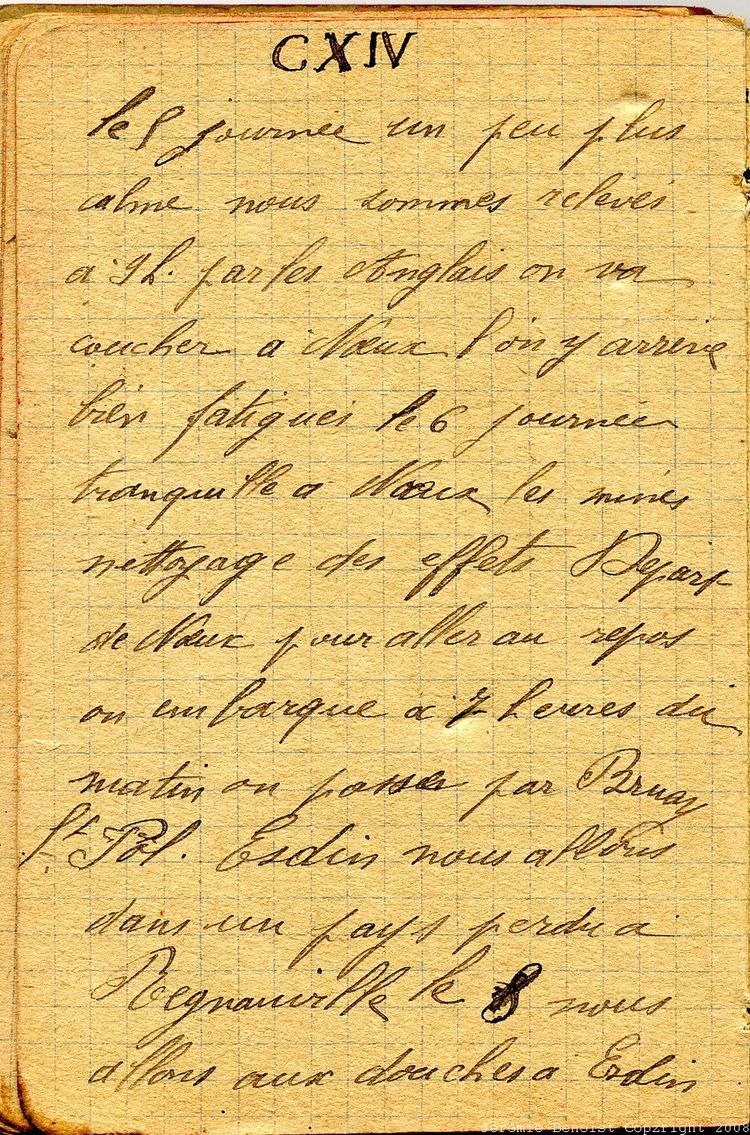 CXIV
le 5 journée un peu plus
calme nous sommes relevés
a 9h. par les Anglais on va
coucher a Nœux l'on y arrive
bien fatigués le 6 journée
tranquille a Nœux les mines
nettoyage des effets Depart
de Nœux pour aller au repos
on embarque a 7 heures du
matin on passe par Bruay
St Pol. Esdin nous allons
dans un pays perdu a
Regnauville le 8 nous
allons aux douches a Esdin
Jérémie Benoist Copyright 2008